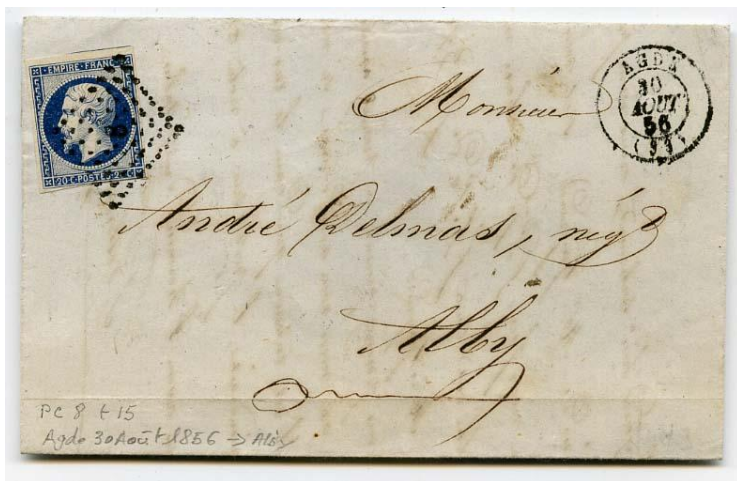 EMPIRE FRANC
20 C POSTES 2 C
8
AGDE
30
AOUT
56
(33)
Monsieur
André Delmas, nég
Alby
PC 8 t 15
Agde 30 Août 1856 →